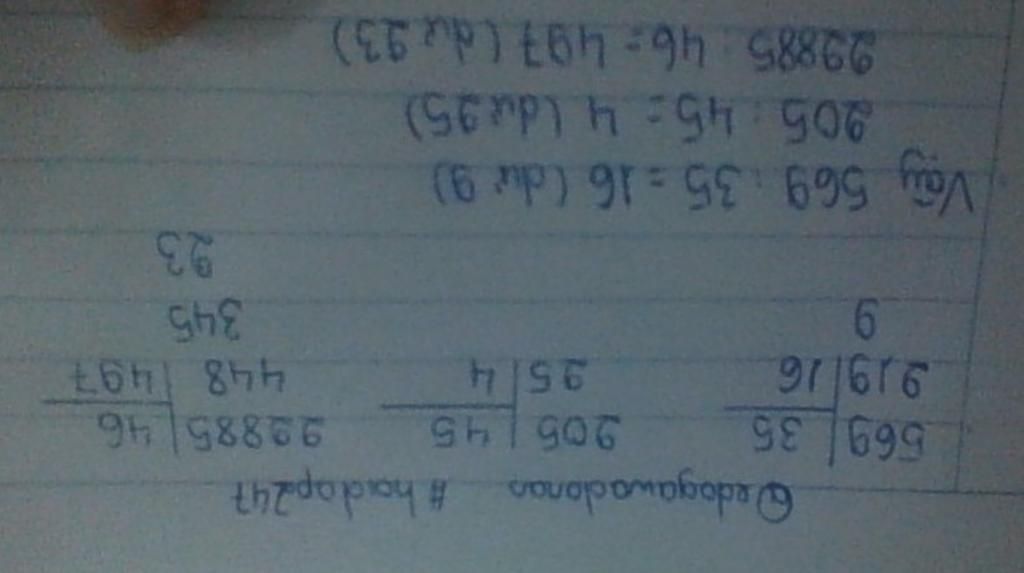 @edogawaconan #hoidap247
569 | 35 205 | 45 22885 | 46
219 | 16 25 | 4 448 | 497
9 345
23
Vậy 569 : 35 = 16 (dư 9)
205 : 45 = 4 (dư 25)
22885 : 46 = 497 (dư 23)